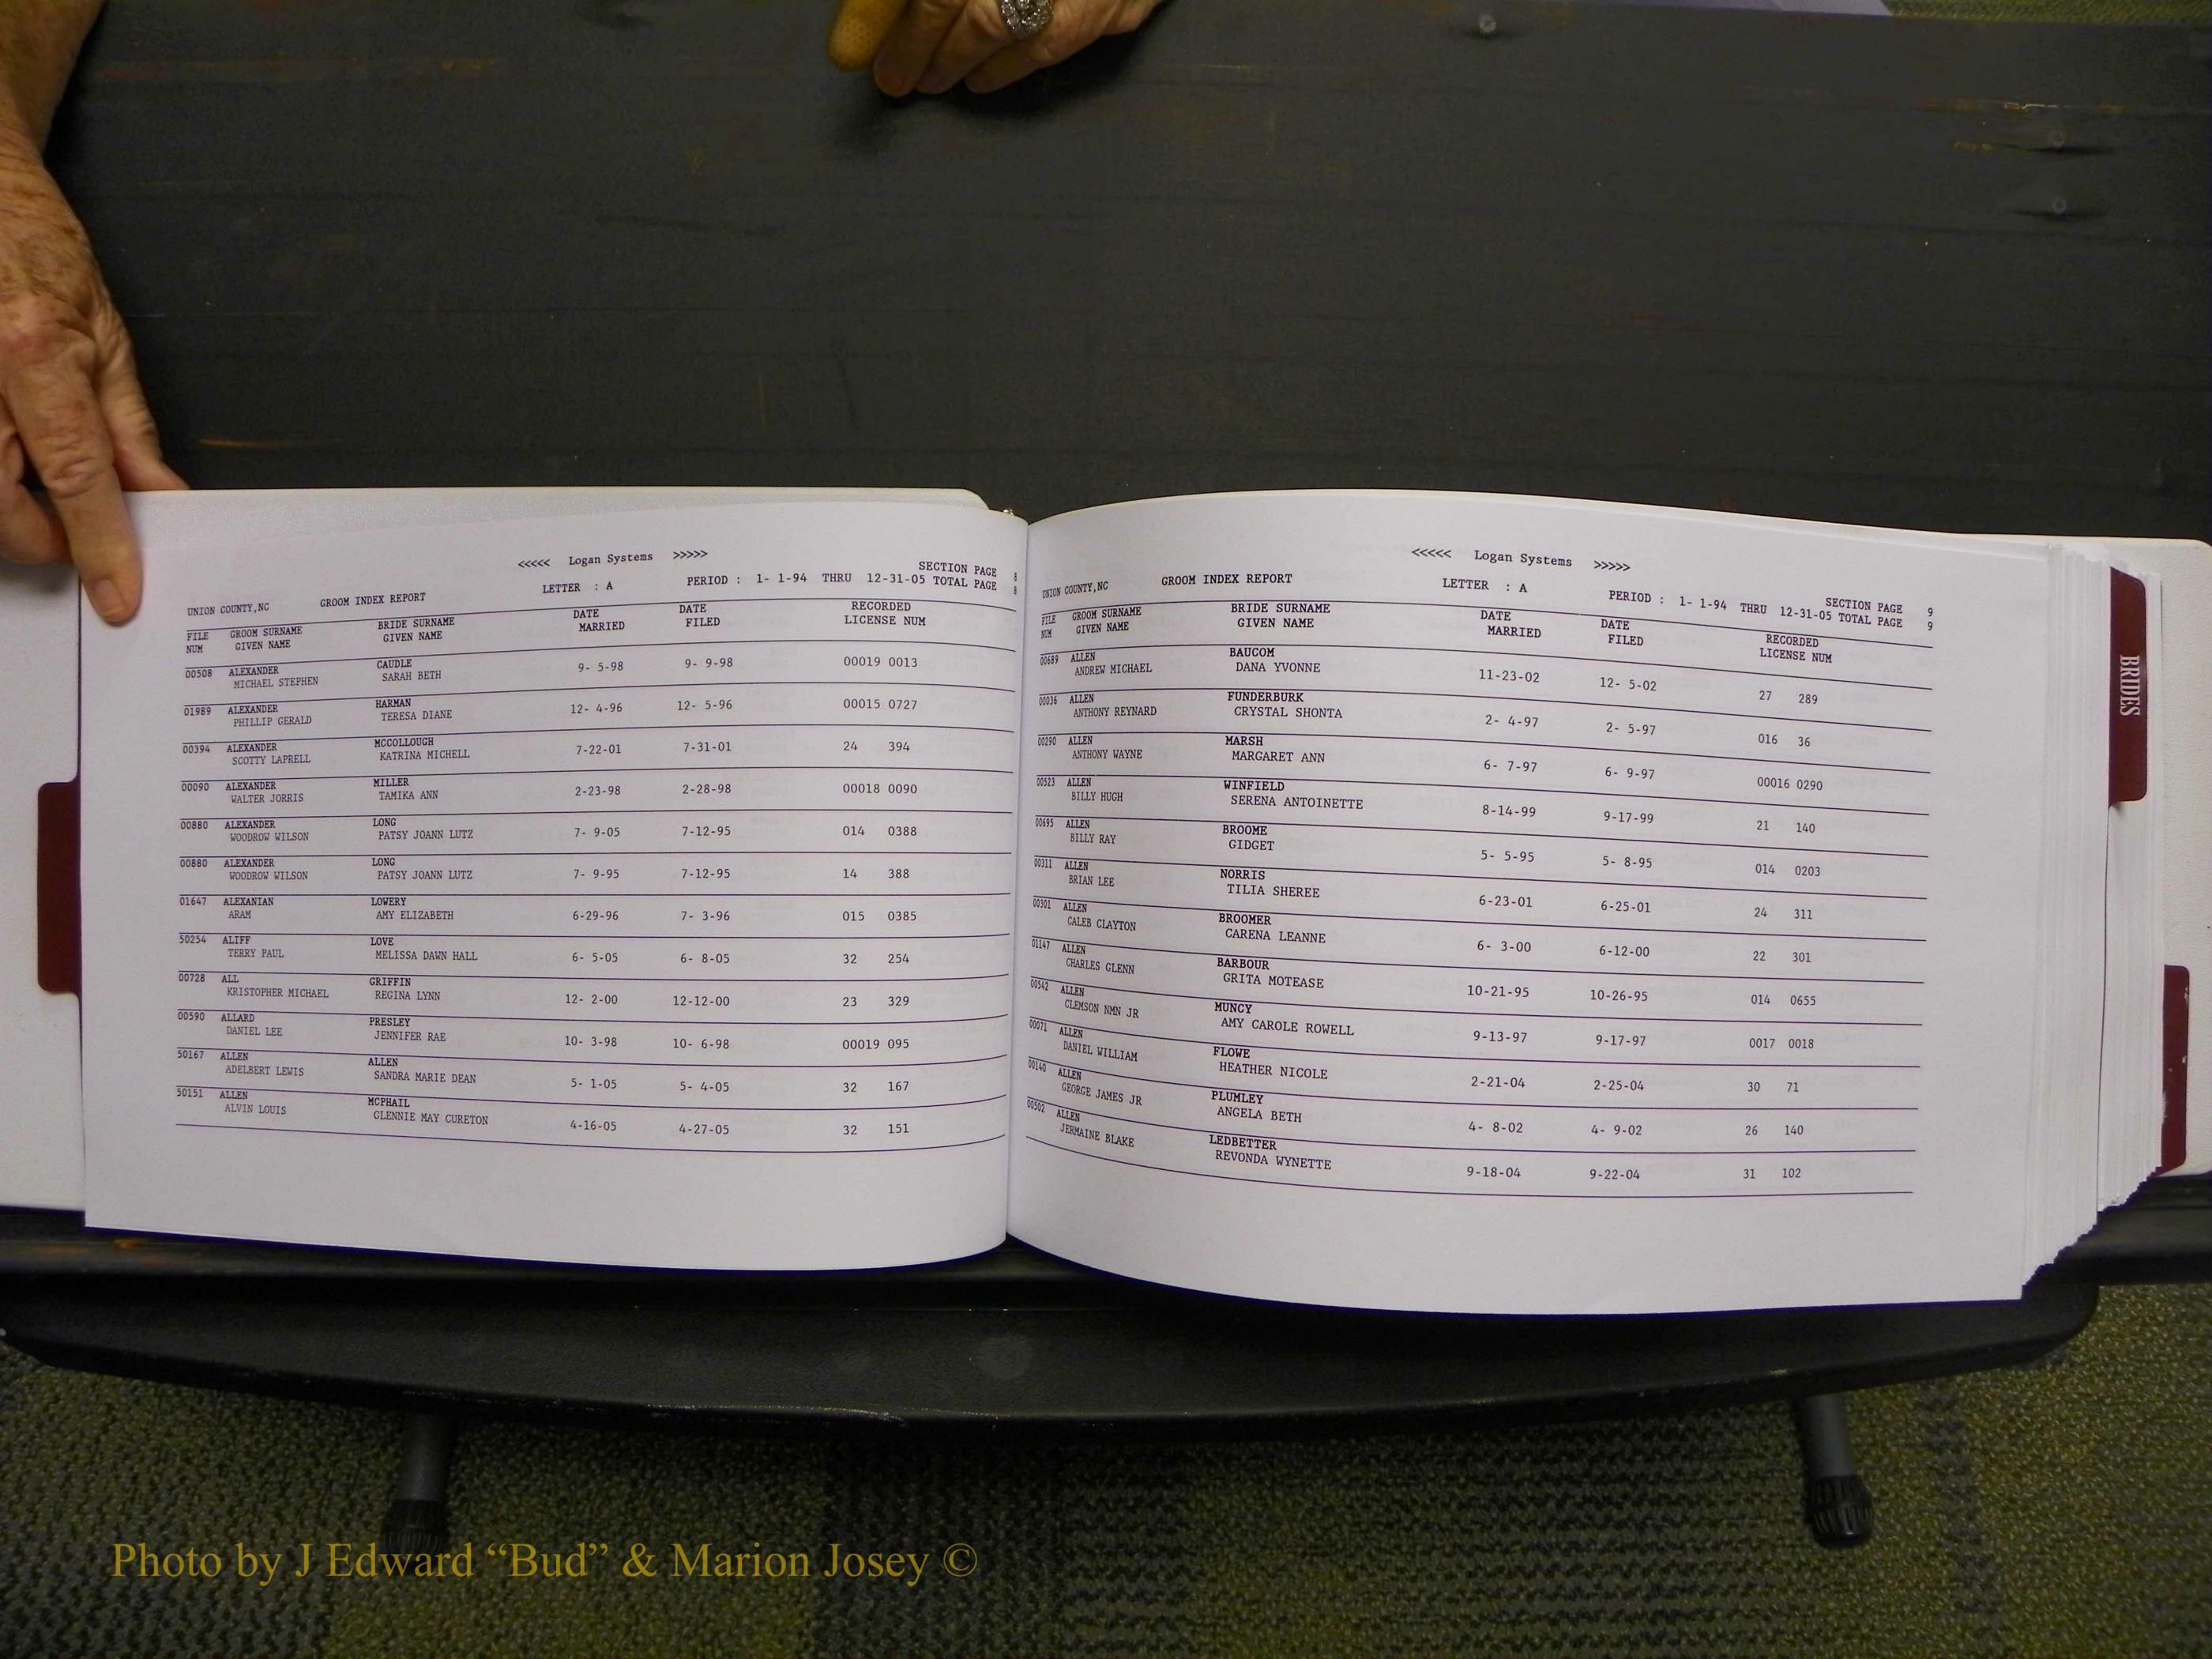 <<<<< Logan Systems >>>>>
SECTION PAGE 8
UNION COUNTY,NC GROOM INDEX REPORT LETTER : A PERIOD : 1- 1-94 THRU 12-31-05 TOTAL PAGE 8
FILE GROOM SURNAME BRIDE SURNAME DATE DATE RECORDED
NUM GIVEN NAME GIVEN NAME MARRIED FILED LICENSE NUM
00508 ALEXANDER CAUDLE
MICHAEL STEPHEN SARAH BETH 9- 5-98 9- 9-98 00019 0013
01989 ALEXANDER HARMAN
PHILLIP GERALD TERESA DIANE 12- 4-96 12- 5-96 00015 0727
00394 ALEXANDER MCCOLLOUGH
SCOTTY LAPRELL KATRINA MICHELL 7-22-01 7-31-01 24 394
00090 ALEXANDER MILLER
WALTER JORRIS TAMIKA ANN 2-23-98 2-28-98 00018 0090
00880 ALEXANDER LONG
WOODROW WILSON PATSY JOANN LUTZ 7- 9-05 7-12-95 014 0388
00880 ALEXANDER LONG
WOODROW WILSON PATSY JOANN LUTZ 7- 9-95 7-12-95 14 388
01647 ALEXANIAN LOWERY
ARAM AMY ELIZABETH 6-29-96 7- 3-96 015 0385
50254 ALIFF LOVE
TERRY PAUL MELISSA DAWN HALL 6- 5-05 6- 8-05 32 254
00728 ALL GRIFFIN
KRISTOPHER MICHAEL REGINA LYNN 12- 2-00 12-12-00 23 329
00590 ALLARD PRESLEY
DANIEL LEE JENNIFER RAE 10- 3-98 10- 6-98 00019 095
50167 ALLEN ALLEN
ADELBERT LEWIS SANDRA MARIE DEAN 5- 1-05 5- 4-05 32 167
50151 ALLEN MCPHAIL
ALVIN LOUIS GLENNIE MAY CURETON 4-16-05 4-27-05 32 151
<<<<< Logan Systems >>>>>
SECTION PAGE 9
UNION COUNTY,NC GROOM INDEX REPORT LETTER : A PERIOD : 1- 1-94 THRU 12-31-05 TOTAL PAGE 9
FILE GROOM SURNAME BRIDE SURNAME DATE DATE RECORDED
NUM GIVEN NAME GIVEN NAME MARRIED FILED LICENSE NUM
00689 ALLEN BAUCOM
ANDREW MICHAEL DANA YVONNE 11-23-02 12- 5-02 27 289
00036 ALLEN FUNDERBURK
ANTHONY REYNARD CRYSTAL SHONTA 2- 4-97 2- 5-97 016 36
00290 ALLEN MARSH
ANTHONY WAYNE MARGARET ANN 6- 7-97 6- 9-97 00016 0290
00523 ALLEN WINFIELD
BILLY HUGH SERENA ANTOINETTE 8-14-99 9-17-99 21 140
00695 ALLEN BROOME
BILLY RAY GIDGET 5- 5-95 5- 8-95 014 0203
00311 ALLEN NORRIS
BRIAN LEE TILIA SHEREE 6-23-01 6-25-01 24 311
00301 ALLEN BROOMER
CALEB CLAYTON CARENA LEANNE 6- 3-00 6-12-00 22 301
01147 ALLEN BARBOUR
CHARLES GLENN GRITA MOTEASE 10-21-95 10-26-95 014 0655
00542 ALLEN MUNCY
CLEMSON NMN JR AMY CAROLE ROWELL 9-13-97 9-17-97 0017 0018
00071 ALLEN FLOWE
DANIEL WILLIAM HEATHER NICOLE 2-21-04 2-25-04 30 71
00140 ALLEN PLUMLEY
GEORGE JAMES JR ANGELA BETH 4- 8-02 4- 9-02 26 140
00502 ALLEN LEDBETTER
JERMAINE BLAKE REVONDA WYNETTE 9-18-04 9-22-04 31 102
BRIDES
Photo by J Edward “Bud” & Marion Josey ©